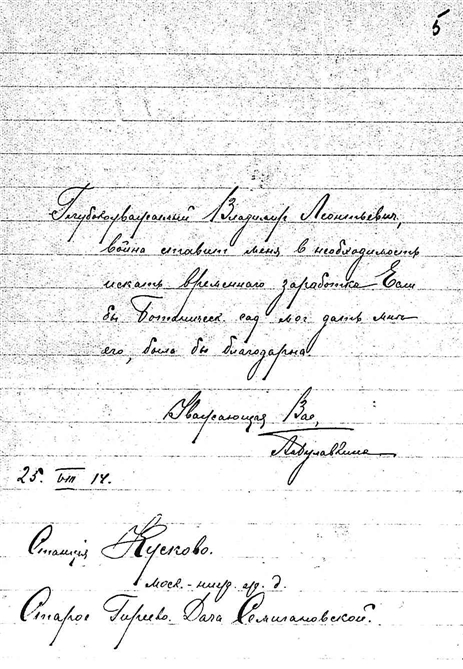 5
Глубокоуважаемый Владимир Леонтьевич,
война ставит меня в необходимость
искать временнаго заработка Если
бы Ботаническ. сад мог дать мне
его, была бы благодарна
Уважающая Вас,
25. VIII 14.
Станция Кусково.
моск.-ниж. д.
Старое Гиреево. Дача Семигановской.